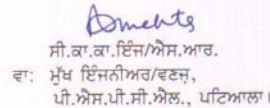 ਸੀ.ਕਾ.ਕਾ.ਇੰਜ/ਐਸ.ਆਰ.
ਵਾ: ਮੁੱਖ ਇੰਜਨੀਅਰ/ਵਣਜ,
ਪੀ.ਐਸ.ਪੀ.ਸੀ.ਐਲ., ਪਟਿਆਲਾ।